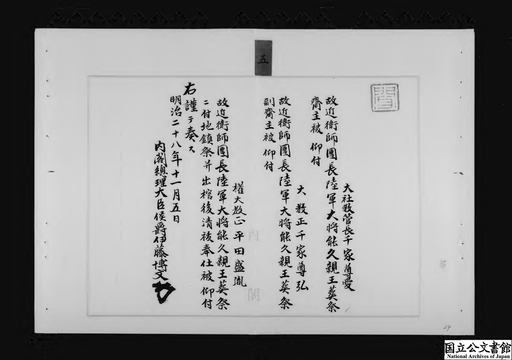 五
大社教管長千家尊愛
故近衛師團長陸軍大將能久親王葬祭
齋主被 仰付
大教正千家尊弘
故近衛師團長陸軍大將能久親王葬祭
副齋主被 仰付
權大教正平田盛胤
故近衛師團長陸軍大將能久親王葬祭
ニ付地鎮祭并出棺後清祓奉仕被 仰付
右謹テ奏ス
明治二十八年十一月五日
内閣總理大臣侯爵伊藤博文
国立公文書館
National Archives of Japan